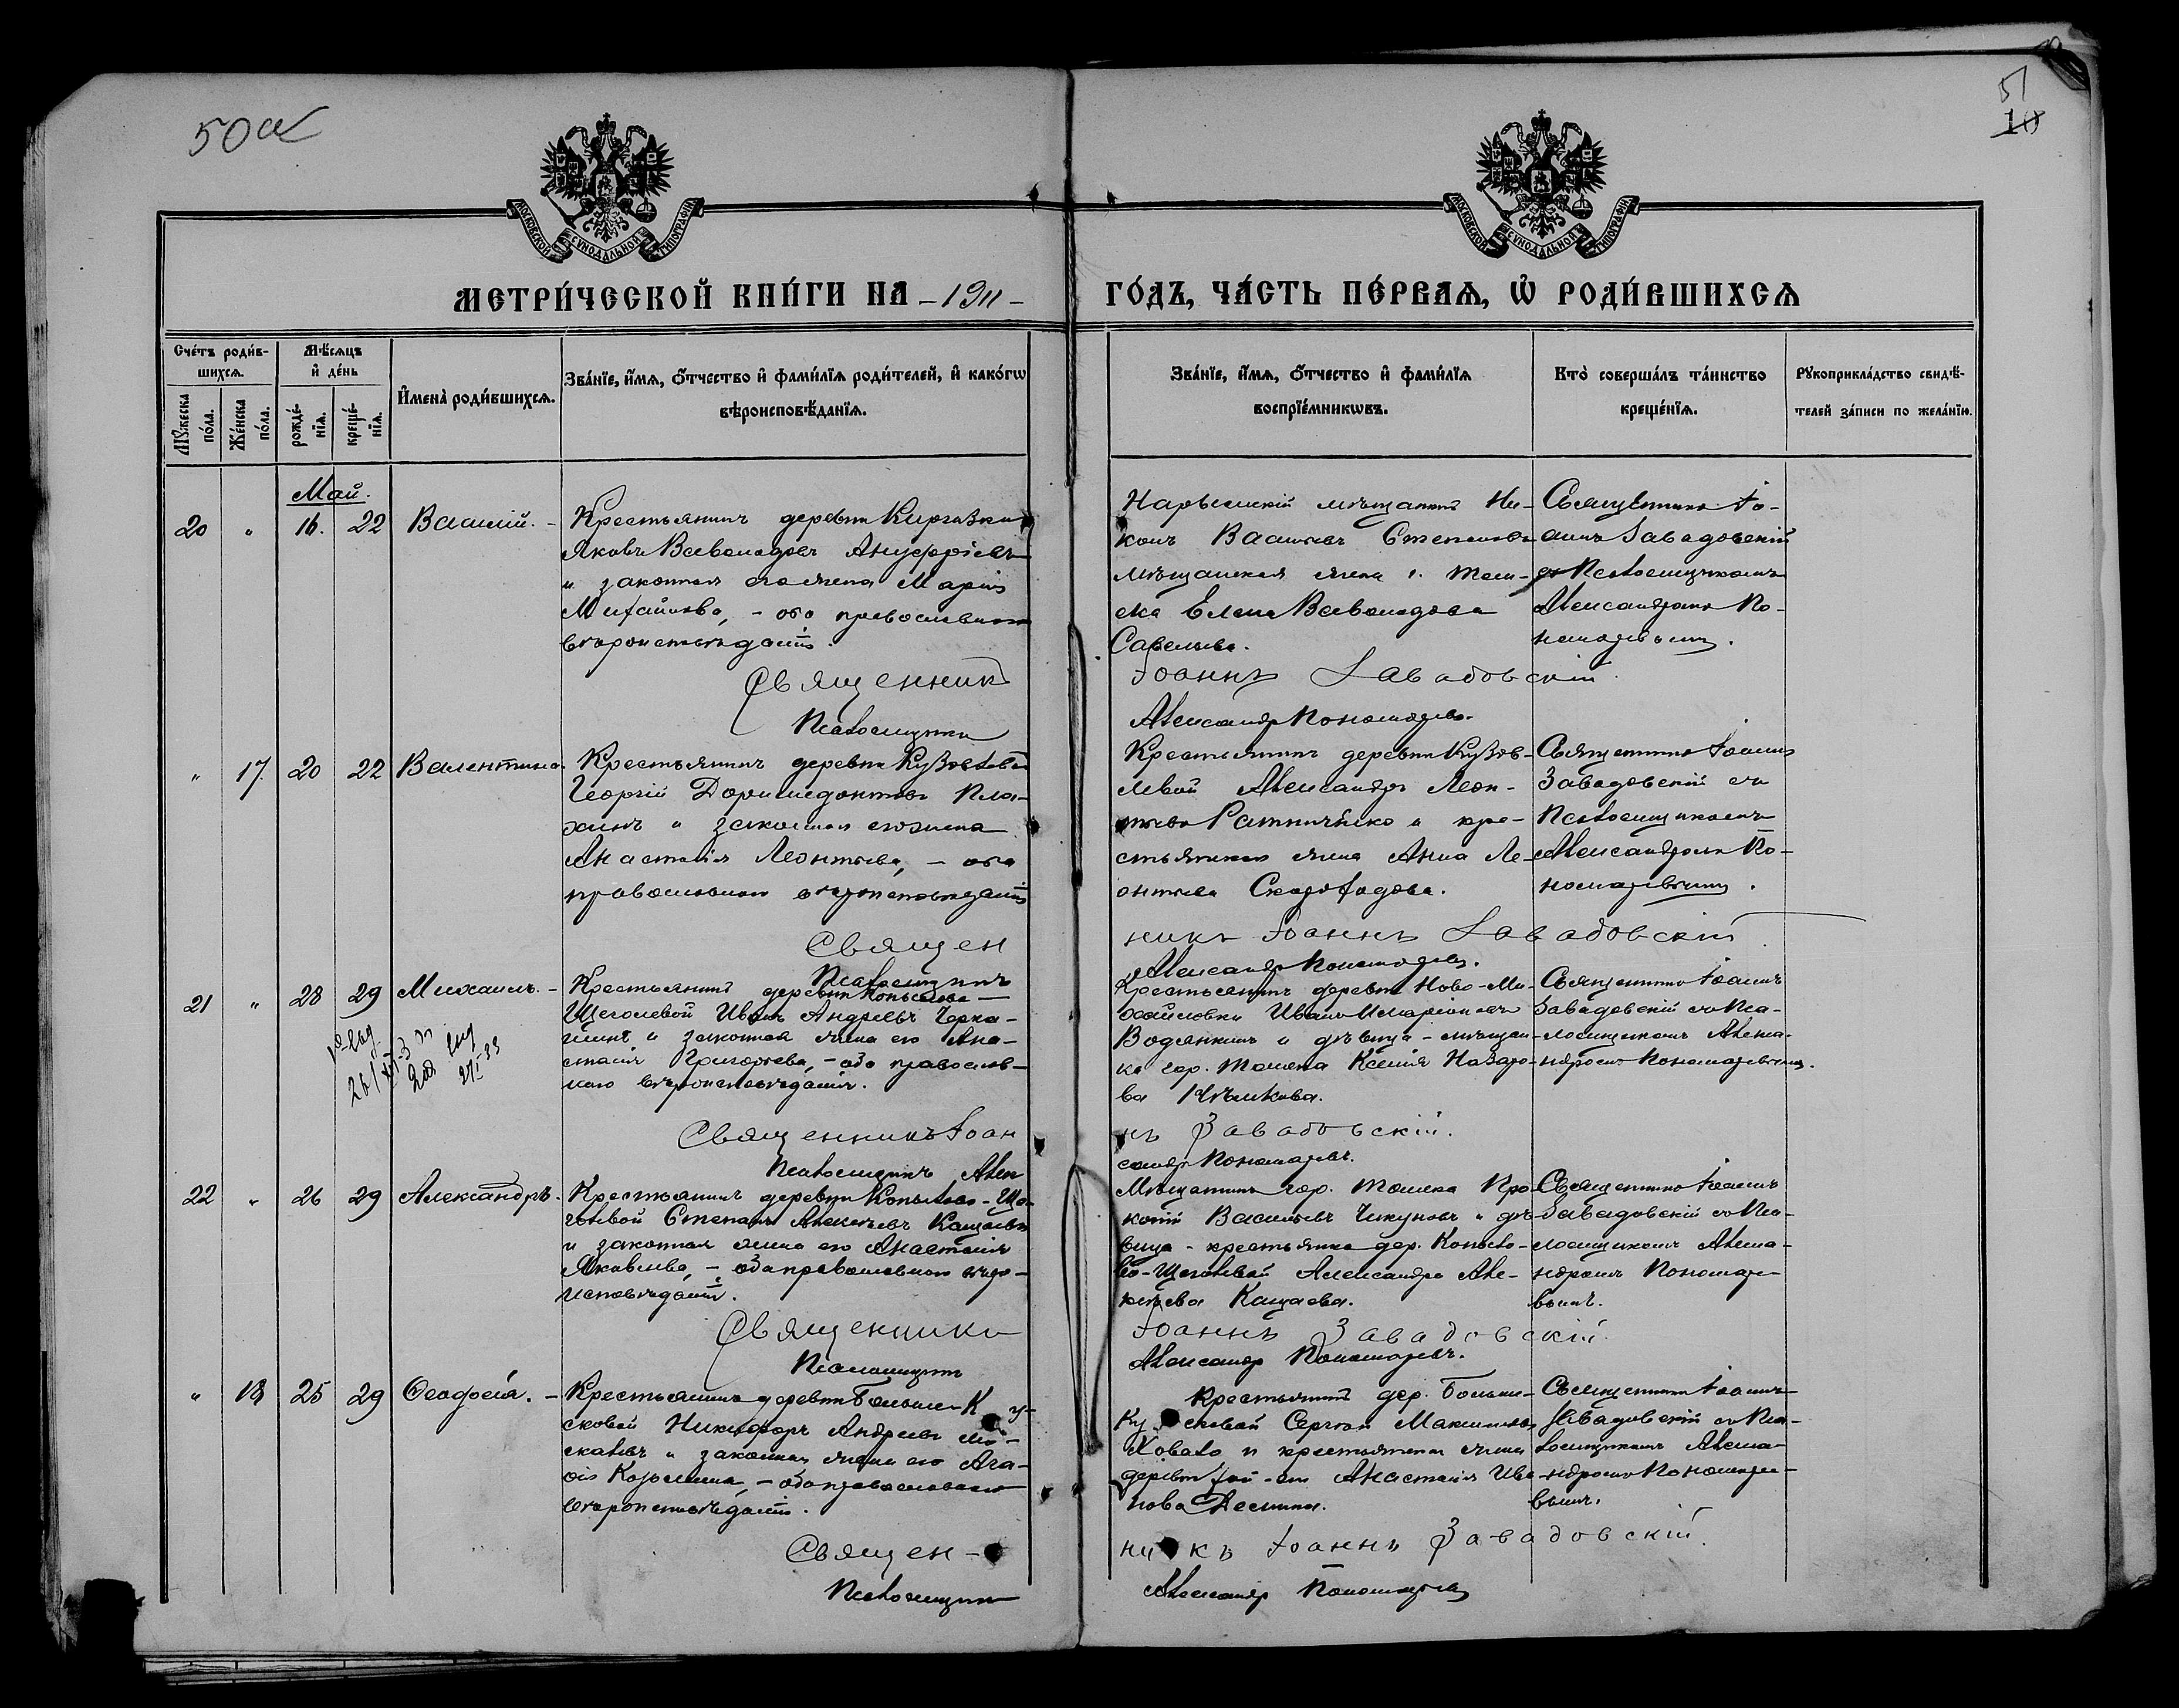 50 об
51
10
МОСКОВСКОЙ СѴНОДАЛЬНОЙ ТИПОГРАФІИ
МОСКОВСКОЙ СѴНОДАЛЬНОЙ ТИПОГРАФІИ
МЕТРИ́ЧЕСКОЙ КНИ́ГИ НА -1911- ГО́ДЪ, ЧА́СТЬ ПЕ́РВАѦ, Ѡ҆ РОДИ́ВШИХСѦ
Сче́тъ роди́в-
шихсѧ.
Мꙋ́жеска по́ла.
Же́нска по́ла.
Мѣ́сѧцъ
и҆ де́нь
рожде́-
нїѧ.
креще́-
нїѧ.
И҆мена̀ роди́вшихсѧ.
Зва́нїе, и҆́мѧ, ѻ҆́тчество и҆ фами́лїѧ роди́телей, и҆ како́гѡ
вѣроисповѣ́данїѧ.
Зва́нїе, и҆́мѧ, ѻ҆́тчество и҆ фами́лїѧ
воспрїе́мникѡвъ.
Кто̀ соверша́лъ та́инство
креще́нїѧ.
Рꙋкоприкла́дство свидѣ́-
телей за́писи по жела́нїю.
Май.
20 " 16. 22 Василій. -
Крестьянинъ деревни Киргизки
Яковъ Всеволодовъ Ануфріевъ
и законная его жена Марія
Михайлова, - оба православнаго
вѣроисповѣданія.
Нарымскій мѣщанинъ Ни-
конъ Васильевъ Степановъ
мѣщанская жена г. Том-
ска Елена Всеволодова
Савельева.
Священникъ Іо-
аннъ Завадовскій
съ Псаломщикомъ
Александромъ По-
номаревымъ.
Священникъ Іоаннъ Завадовскій.
Псаломщикъ Александръ Пономаревъ.
" 17. 20 22 Валентина.
Крестьянинъ деревни Кузовлевой
Георгій Доримедонтовъ Пло-
хихъ и законная его жена
Анастасія Леонтьева, - оба
православнаго вѣроисповѣданія
Крестьянинъ деревни Кузов-
левой Александръ Леон-
тьевъ и кре-
стьянская жена Анна Ле-
онтьева Скороходова.
Священникъ Іоаннъ
Завадовскій съ
Псаломщикомъ
Александромъ По-
номаревымъ.
Священникъ Іоаннъ Завадовскій
Псаломщикъ Александръ Пономаревъ.
21 " 28 29 Михаилъ. -
Крестьянинъ деревни Копылово-
Щеголевой Иванъ Андреевъ Черка-
шинъ и законная жена его Ана-
стасія Григорьева, - оба православ-
наго вѣроисповѣданія.
Крестьянинъ деревни Ново-Ми-
хайловки Иванъ Иларіоновъ
Водянкинъ и дѣвица - мѣщан-
ка гор. Томска Ксенія Назаро-
ва
Священникъ Іоаннъ
Завадовскій съ Пса-
ломщикомъ Алекса-
ндромъ Пономаревымъ.
Священникъ Іоаннъ Завадовскій.
Псаломщикъ Александръ Пономаревъ.
22 " 26 29 Александръ.
Крестьянинъ деревни Копылово-Ще-
голевой Степанъ Алексѣевъ Кащаевъ
и законная жена его Анастасія
Яковлева, - оба православнаго вѣро-
исповѣданія.
Мѣщанинъ гор. Томска Про-
копій Васильевъ Чикуновъ и дѣ-
вица - крестьянка дер. Копыло-
во-Щеголевой Александра Але-
ксѣева Кащаева.
Священникъ Іоаннъ
Завадовскій съ Пса-
ломщикомъ Алекса-
ндромъ Пономаре-
вымъ.
Священникъ Іоаннъ Завадовскій.
Псаломщикъ Александръ Пономаревъ.
" 18 25 29 Ѳеодосія. -
Крестьянинъ деревни Больше-Ку-
сковой Никифоръ Андреевъ Мо-
скалевъ и законная жена его Ага-
фія Козьмина, - оба православнаго
вѣроисповѣданія.
Крестьянинъ дер. Больше-
Кусковой Сергѣй Максимовъ
и крестьянская жена
деревни той-же Анастасія Ива-
нова
Священникъ Іоаннъ
Завадовскій съ Пса-
ломщикомъ Алекса-
ндромъ Пономаре-
вымъ.
Священ- никъ Іоаннъ Завадовскій.
Псаломщикъ Александръ Пономаревъ